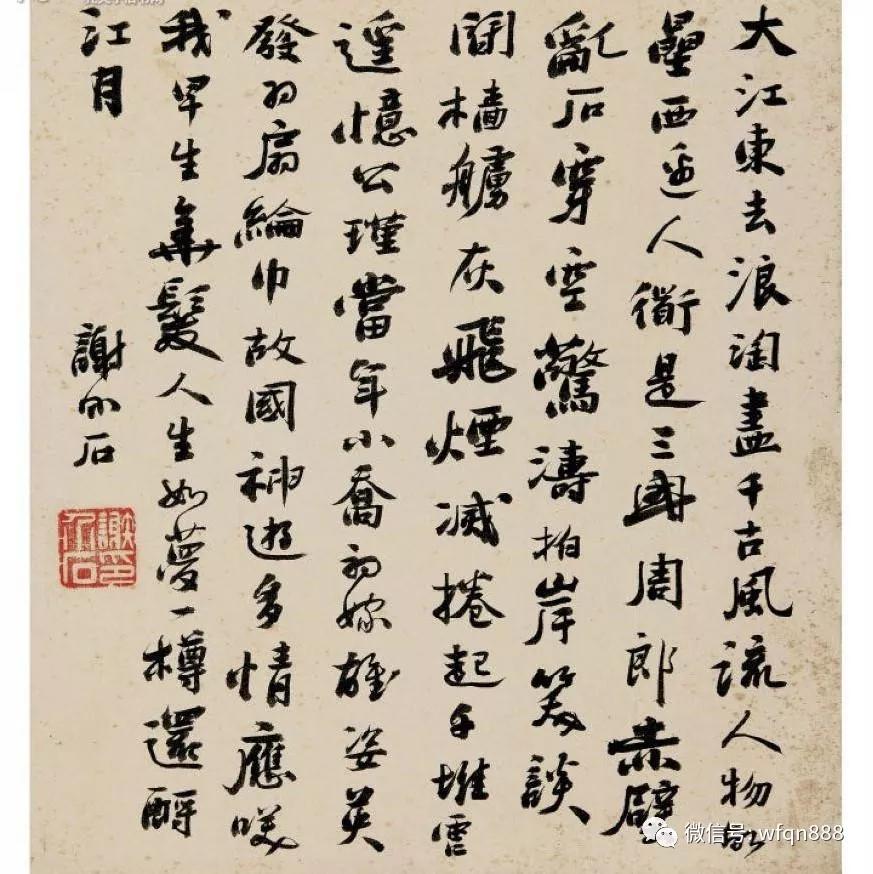 大江東去浪淘盡千古風流人物故
壘西邊人衟是三國周郎赤壁
亂石穿空驚濤拍岸笑談
間檣艣灰飛煙滅捲起千堆雪
遥憶公瑾當年小喬初嫁雄姿英
發羽扇綸巾故國神遊多情應咲
我早生華髮人生如夢一樽還酹
江月
謝介石
謝印介石
微信号: wfqn888